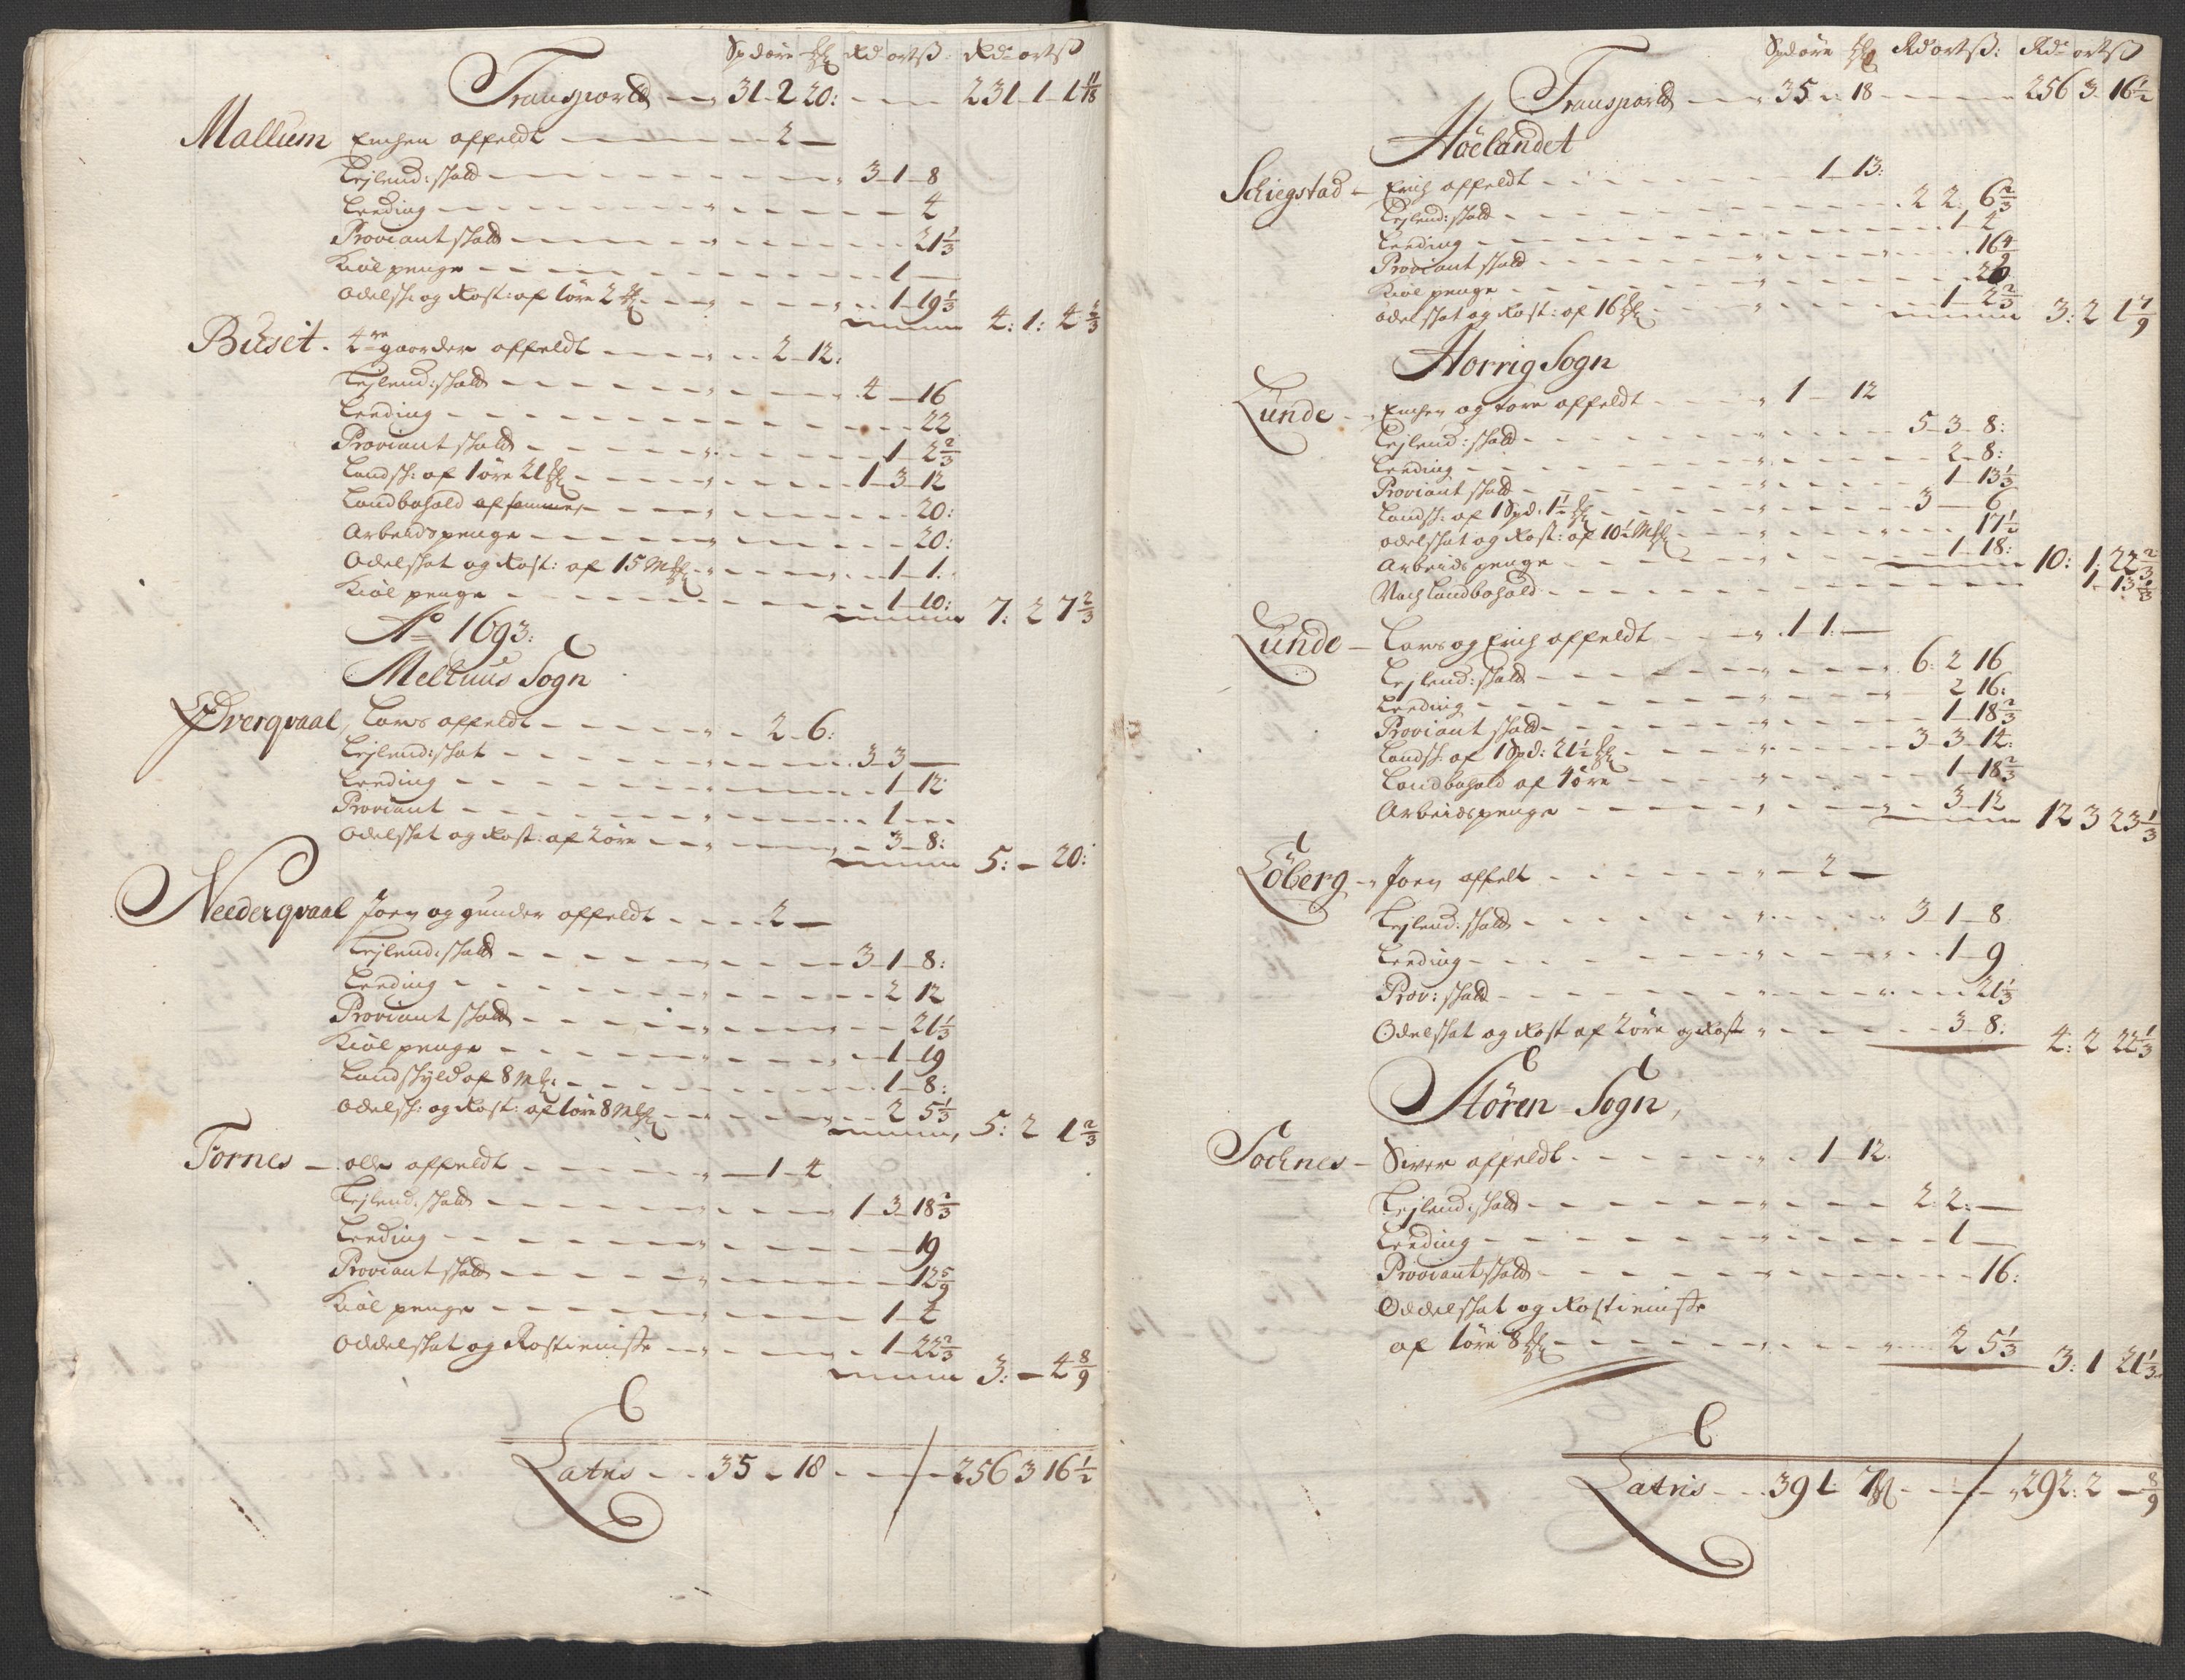 Spd öre ℔ Rd ort ß: Rdr ort ß
Transportt 31 2 20: 231 1 1 11/18
Mallum Enchen affeldt 2 —
Leylend: skatt 3 1 8
Leeding 4
Proviant skatt 21 1/3
Kiöl penge 1 —
Odelsk: og Rost: af 1 öre 2 ℔ 1 19 1/3
4: 1: 4 2/3
Buset. 4re gaarder affeldt 2 12:
Leylend: skatt 4 — 16
Leeding 22
Proviant skatt 1 2 2/3
Landsk: af 1 öre 21 ℔ 1 3 12
Landbohold af samme 20:
Arbeidspenge 20:
Odelskat og Rost: af 15 Mℓ 1 1:
Kiöl penge 1 10: 7: 2 7 2/3
Ao 1693:
Melhuus Sogn
Øfverqvaal, Lars affeldt 2 6:
Leylend: skat 3 3 —
Leeding 1 12
Proviant 1 —
Odelskat og Rost: af 2 öre 3 8:
5: — 20:
Neederqvaal Joen og gunder affeldt 2 —
Leylend: skatt 3 1 8:
Leeding 2 12
Proviant skatt 21 1/3
Kiöl penge 1 19
Landskyld af 8 Mℓ: 1 8:
Odelsk: og Rost: af 1 öre 8 Mℓ 2 5 1/3
5: 2 1 2/3
Fornes — olle affeldt 1 4
Leylend: skatt 1 3 18 2/3
Leeding 19
Proviant skatt 12 5/9
Kiöl penge 1 4
Oddelskat og Rostieniste 1 22 2/3
3: — 4 8/9
Latris 35 — 18 256 3 16 1/2
Spd öre ℔ Rd ort ß: Rdr ort ß
Transportt 35 — 18 256 3 16 1/2
Höelandet
Schiegstad — Erich affeldt 1 13:
Leylend: skatt 2 2 6 2/3
Leeding 1 4
Proviant skatt 16 4/9
Kiöl penge 20
Odelskat og Rost: af 16 ℔ 1 2 2/3
3: 2 1 7/9
Horrig Sogn
Lunde — Enchen og Tore affeldt 1 — 12
Leylend: skatt 5 3 8:
Leeding 2 8:
Proviant skatt 1 13 1/3
Landsk: af 1 Spd: 1 1/2 ℔ 3 — 6
Odelskat og Rost: af 10 1/2 Mℓ 17 1/2
Arbeids penge 1 18: 10: 1: 22 2/3
Noch Landbohold 1 13 1/3
Lunde — Lars og Erich affeldt 1 1: —
Leylend: skatt 6: 2 16
Leeding 2 16:
Proviant skatt 1 18 2/3
Landsk: af 1 Spd: 21 1/2 ℔ 3 3 14:
Landbohold af 1 öre 1 18 2/3
Arbeidspenge 3 12
12 3 23 1/3
Löberg — Joen affelt 2 —
Leylend: skatt 3 1 8
Leeding 1 9
Prov: skatt 21 1/3
Odelskat og Rost af 2 öre og Rost 3 8:
4: 2 22 1/3
Stören Sogn,
Sochnes — Siver affeldt 1 12
Leylend: skatt 2: 2: —
Leeding 1 —
Proviant skatt 16:
Oddelskat og Rostieniste
af 1 öre 8 ℔ 2 5 1/3
3: 1 21 1/3
Latris 39 1 7 ℔ 292: 2 — 8/9